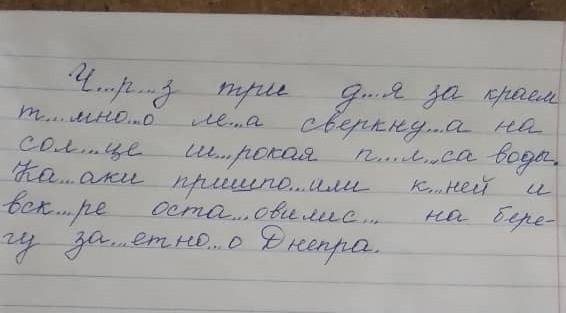 Ч...р...з три д...я за краем
т...мно...о ле...а сверкну...а на
сол...це ш...рокая п...л...са воды.
Ка...аки пришпо...или к...ней и
вск...ре оста...овилис... на бере-
гу за...етно...о Днепра.